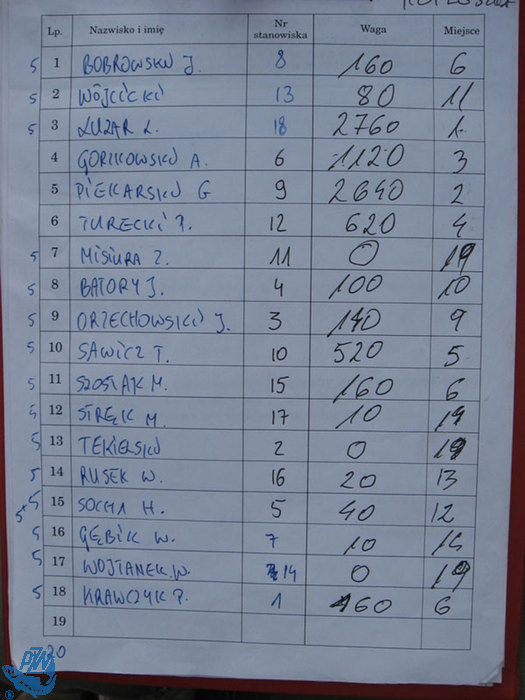 Lp. Nazwisko i imię Nr stanowiska Waga Miejsce
5 1 BOBROWSKI J. 8 160 6
5 2 WÓJCICKI 13 80 11
5 3 ŁUZAR L. 18 2760 1.
4 GORIKOWSKI A. 6 1120 3
5 PIEKARSKI G 9 2640 2
6 TURECKI P. 12 620 4
5 7 MISIURA Z. 11 0 19
5 8 BATORY J. 4 100 10
5 9 ORZECHOWSKI J. 3 140 9
5 10 SAWICZ T. 10 520 5
5 11 SZOSTAK M. 15 160 6
5 12 STRĘK M. 17 10
5 13 TEKIELSKI 2 0 19
5 14 RUSEK W. 16 20 13
5 15 SOCHA H. 5 40 12
5 16 GĘBIK W. 7 10 14
5 17 WOJTANEK.W. 14 0 19
5 18 KRAWCZYK P. 1 160 6
19
20
PZW